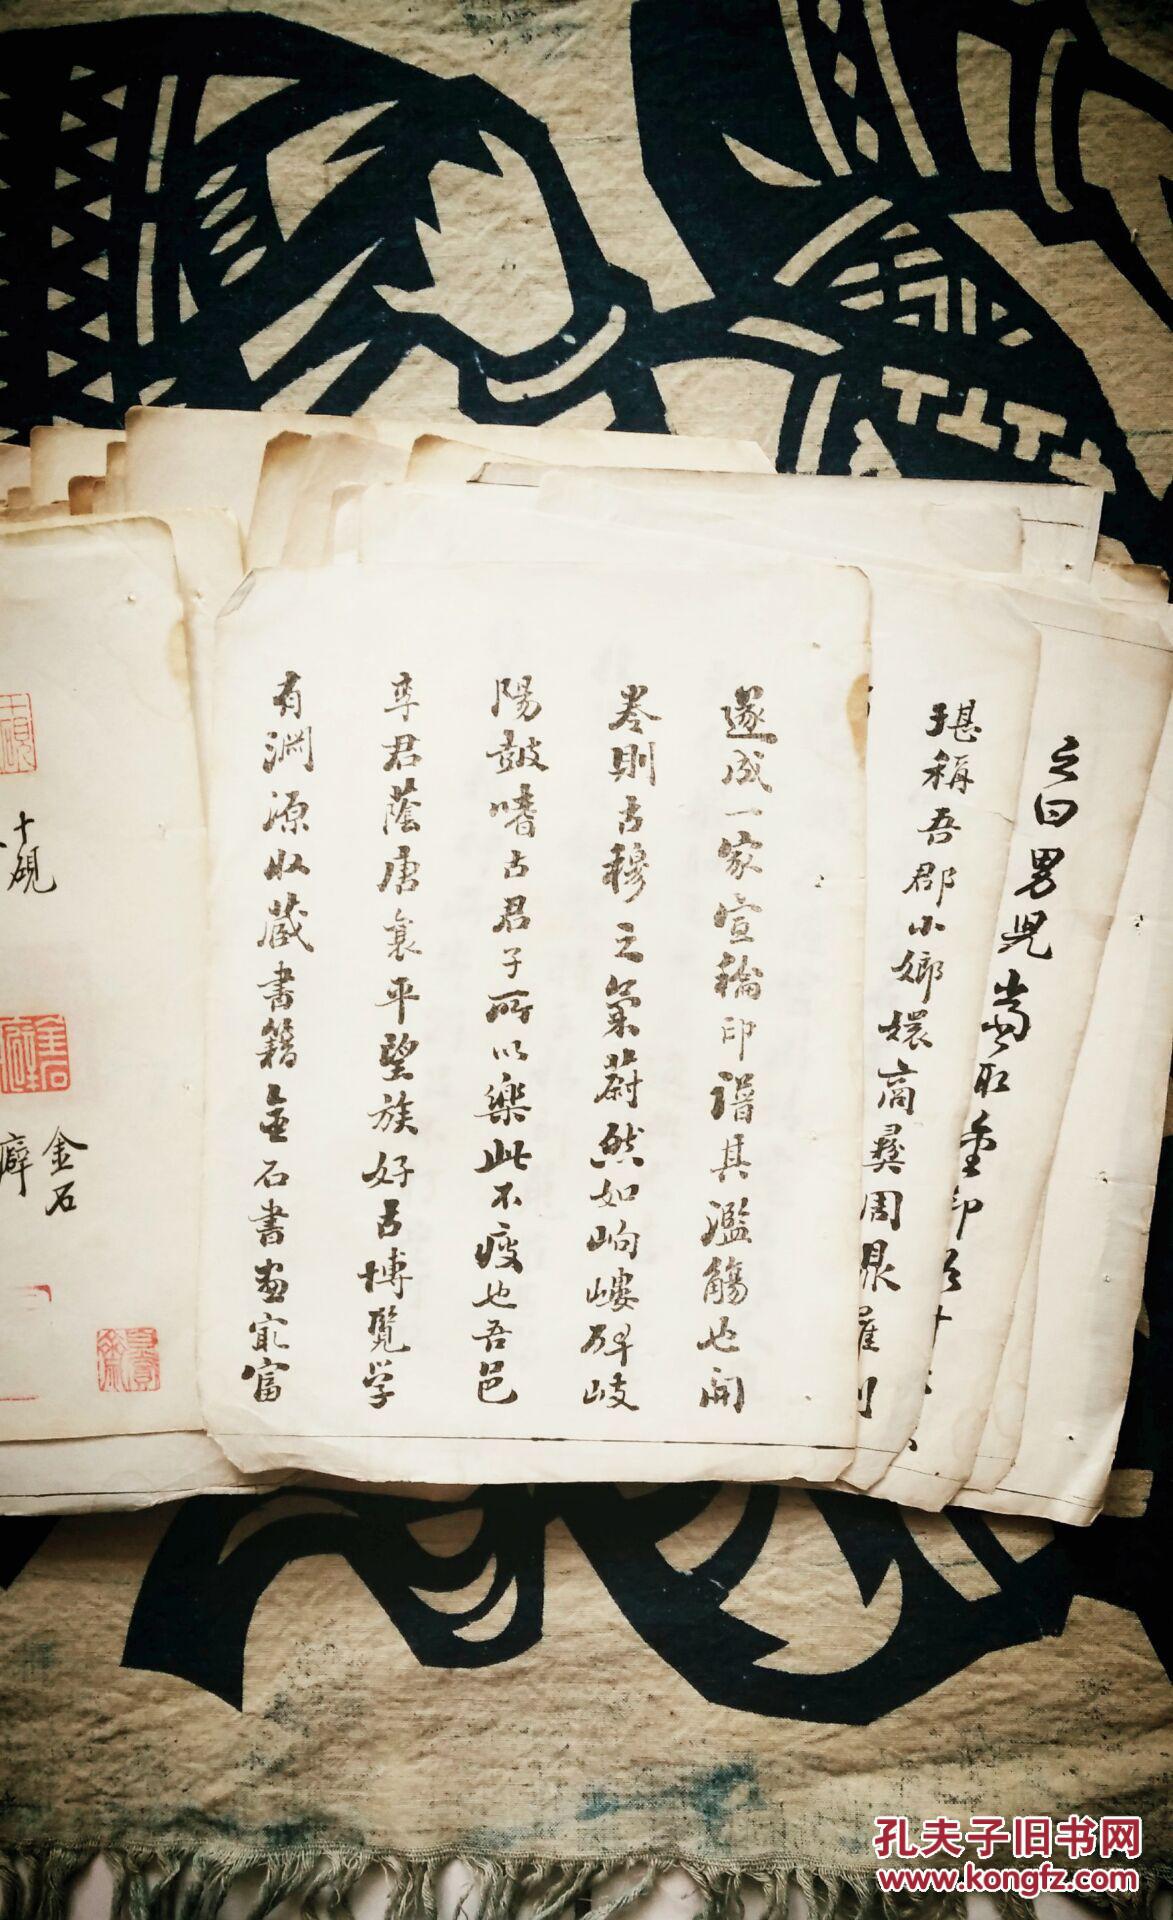 之曰男児當取金印
堪稱吾郡小嫏嬛商彝周鼎羅列
遂成一家宣稐印譜其濫觴也開
卷則古穆之氣蔚然如岣嶁碑岐
陽鼓嗜古君子所以樂此不疲也吾邑
李君蔭唐襄平望族好古博覧学
有渊源收蔵書籍金石書畫宏富
十硯
金石
癖
孔夫子旧书网
www.kongfz.com